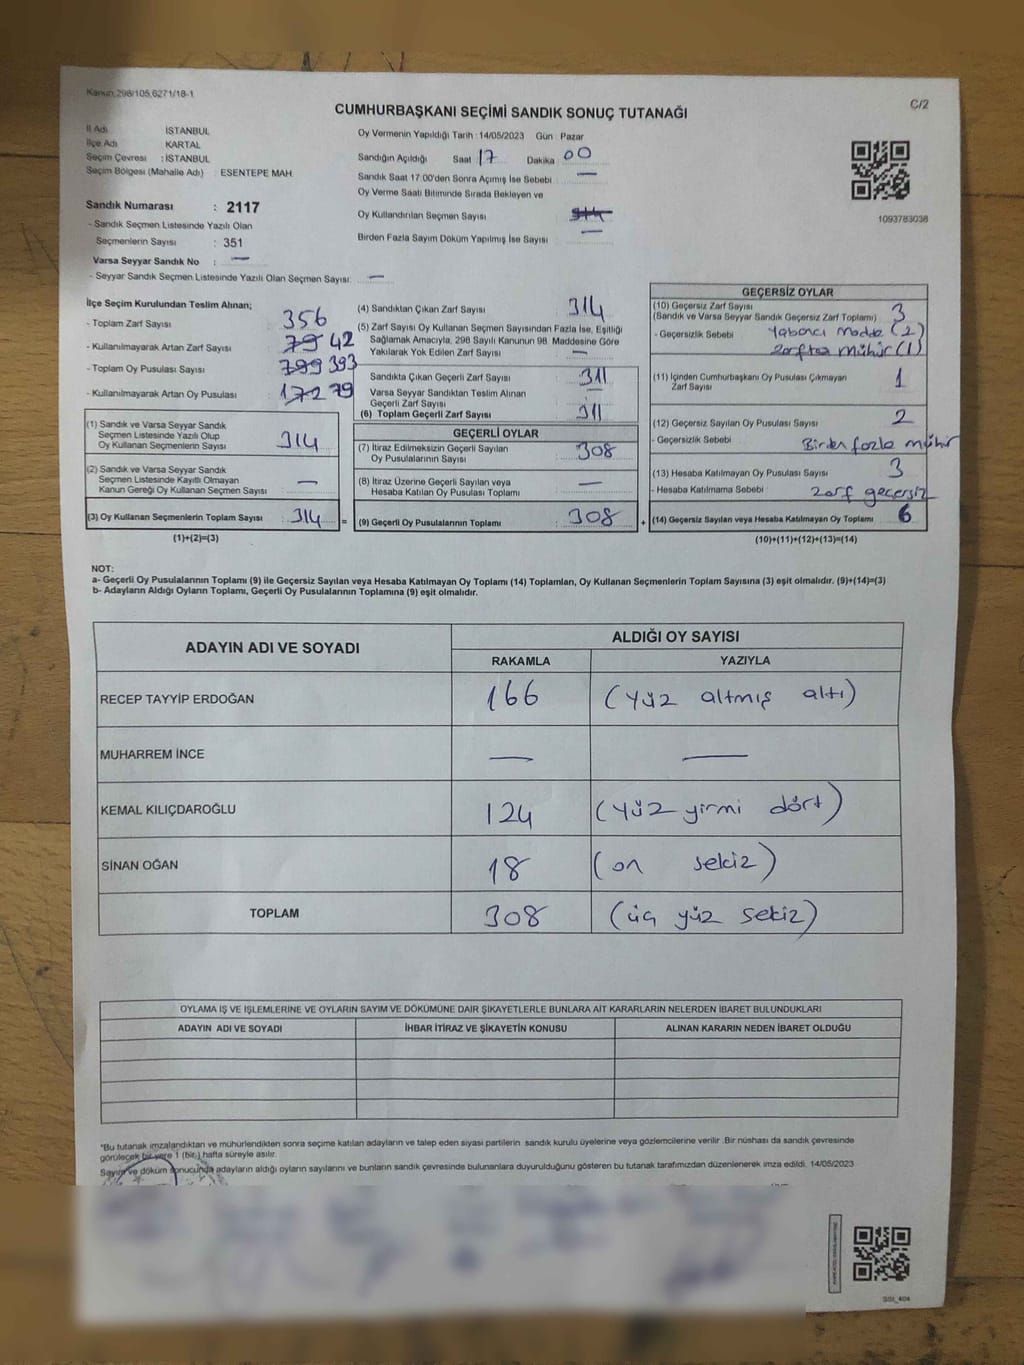 Kanun,298/105,6271/18-1
C/2
CUMHURBAŞKANI SEÇİMİ SANDIK SONUÇ TUTANAĞI
İl Adı İSTANBUL
İlçe Adı KARTAL
Seçim Çevresi : İSTANBUL
Seçim Bölgesi (Mahalle Adı) : ESENTEPE MAH
Sandık Numarası : 2117
- Sandık Seçmen Listesinde Yazılı Olan
Seçmenlerin Sayısı : 351
Varsa Seyyar Sandık No : —
- Seyyar Sandık Seçmen Listesinde Yazılı Olan Seçmen Sayısı —
Oy Vermenin Yapıldığı Tarih : 14/05/2023 Gün : Pazar
Sandığın Açıldığı Saat 17 Dakika 00
Sandık Saat 17.00'den Sonra Açımış İse Sebebi : —
Oy Verme Saati Bitiminde Sırada Bekleyen ve
Oy Kullandırılan Seçmen Sayısı
Birden Fazla Sayım Döküm Yapılmış İse Sayısı —
1093783038
İlçe Seçim Kurulundan Teslim Alınan;
- Toplam Zarf Sayısı : 356
- Kullanılmayarak Artan Zarf Sayısı : 79 42
- Toplam Oy Pusulası Sayısı : 799 393
- Kullanılmayarak Artan Oy Pusulası : 172 79
(1) Sandık ve Varsa Seyyar Sandık
Seçmen Listesinde Yazılı Olup
Oy Kullanan Seçmenlerin Sayısı : 314
(2) Sandık ve Varsa Seyyar Sandık
Seçmen Listesinde Kayıtlı Olmayan
Kanun Gereği Oy Kullanan Seçmen Sayısı : —
(3) Oy Kullanan Seçmenlerin Toplam Sayısı : 314 =
(1)+(2)=(3)
(4) Sandıktan Çıkan Zarf Sayısı : 314
(5) Zarf Sayısı Oy Kullanan Seçmen Sayısından Fazla İse, Eşitliği
Sağlamak Amacıyla, 298 Sayılı Kanunun 98. Maddesine Göre
Yakılarak Yok Edilen Zarf Sayısı : —
Sandıkta Çıkan Geçerli Zarf Sayısı : 311
Varsa Seyyar Sandıktan Teslim Alınan
Geçerli Zarf Sayısı : —
(6) Toplam Geçerli Zarf Sayısı : 311
GEÇERLİ OYLAR
(7) İtiraz Edilmeksizin Geçerli Sayılan
Oy Pusulalarının Sayısı : 308
(8) İtiraz Üzerine Geçerli Sayılan veya
Hesaba Katılan Oy Pusulası Toplamı : —
(9) Geçerli Oy Pusulalarının Toplamı : 308 +
GEÇERSİZ OYLAR
(10) Geçersiz Zarf Sayısı
(Sandık ve Varsa Seyyar Sandık Geçersiz Zarf Toplamı) : 3
- Geçersizlik Sebebi : Yabancı Madde (2)
zarfta mühür (1)
(11) İçinden Cumhurbaşkanı Oy Pusulası Çıkmayan
Zarf Sayısı : 1
(12) Geçersiz Sayılan Oy Pusulası Sayısı : 2
- Geçersizlik Sebebi : Birden fazla mühür
(13) Hesaba Katılmayan Oy Pusulası Sayısı : 3
- Hesaba Katılmama Sebebi : zarf geçersiz
(14) Geçersiz Sayılan veya Hesaba Katılmayan Oy Toplamı : 6
(10)+(11)+(12)+(13)=(14)
NOT:
a- Geçerli Oy Pusulalarının Toplamı (9) ile Geçersiz Sayılan veya Hesaba Katılmayan Oy Toplamı (14) Toplamları, Oy Kullanan Seçmenlerin Toplam Sayısına (3) eşit olmalıdır. (9)+(14)=(3)
b- Adayların Aldığı Oyların Toplamı, Geçerli Oy Pusulalarının Toplamına (9) eşit olmalıdır.
ADAYIN ADI VE SOYADI
ALDIĞI OY SAYISI
RAKAMLA YAZIYLA
RECEP TAYYİP ERDOĞAN 166 (yüz altmış altı)
MUHARREM İNCE — —
KEMAL KILIÇDAROĞLU 124 (yüz yirmi dört)
SİNAN OĞAN 18 (on sekiz)
TOPLAM 308 (üç yüz sekiz)
OYLAMA İŞ VE İŞLEMLERİNE VE OYLARIN SAYIM VE DÖKÜMÜNE DAİR ŞİKAYETLERLE BUNLARA AİT KARARLARIN NELERDEN İBARET BULUNDUKLARI
ADAYIN ADI VE SOYADI İHBAR İTİRAZ VE ŞİKAYETİN KONUSU ALINAN KARARIN NEDEN İBARET OLDUĞU
"Bu tutanak imzalandıktan ve mühürlendikten sonra seçime katılan adayların ve talep eden siyasi partilerin sandık kurulu üyelerine veya gözlemcilerine verilir .Bir nüshası da sandık çevresinde
görülecek bir yere 1 (bir.) hafta süreyle asılır.
Sayım ve döküm sonucunda adayların aldığı oyların sayılarını ve bunların sandık çevresinde bulunanlara duyurulduğunu gösteren bu tutanak tarafımızdan düzenlenerek imza edildi. 14/05/2023